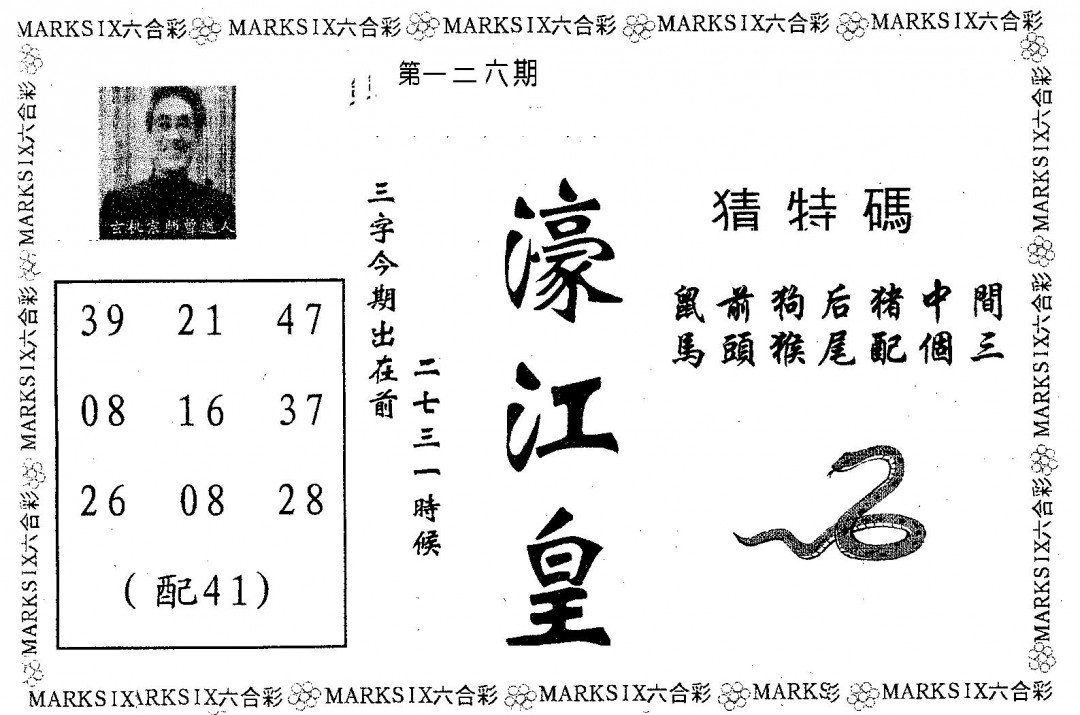 MARKSIX六合彩 MARKSIX六合彩 MARKSIX六合彩 MARKSIX六合彩 MARKSIX六合彩
第一二六期
猜特碼
鼠前狗后猪中間
馬頭猴尾配個三
濠江皇
三字今期出在前
二七三一時候
39 21 47
08 16 37
26 08 28
(配41)
MARKSIX六合彩 MARKSIX六合彩 MARKSIX六合彩
MARKSIX六合彩 MARKSIX六合彩 MARKSIX六合彩
MARKSIX\ARKSIX六合彩 MARKSIX六合彩 MARKSIX六合彩 MARKS MARKSIX六合彩